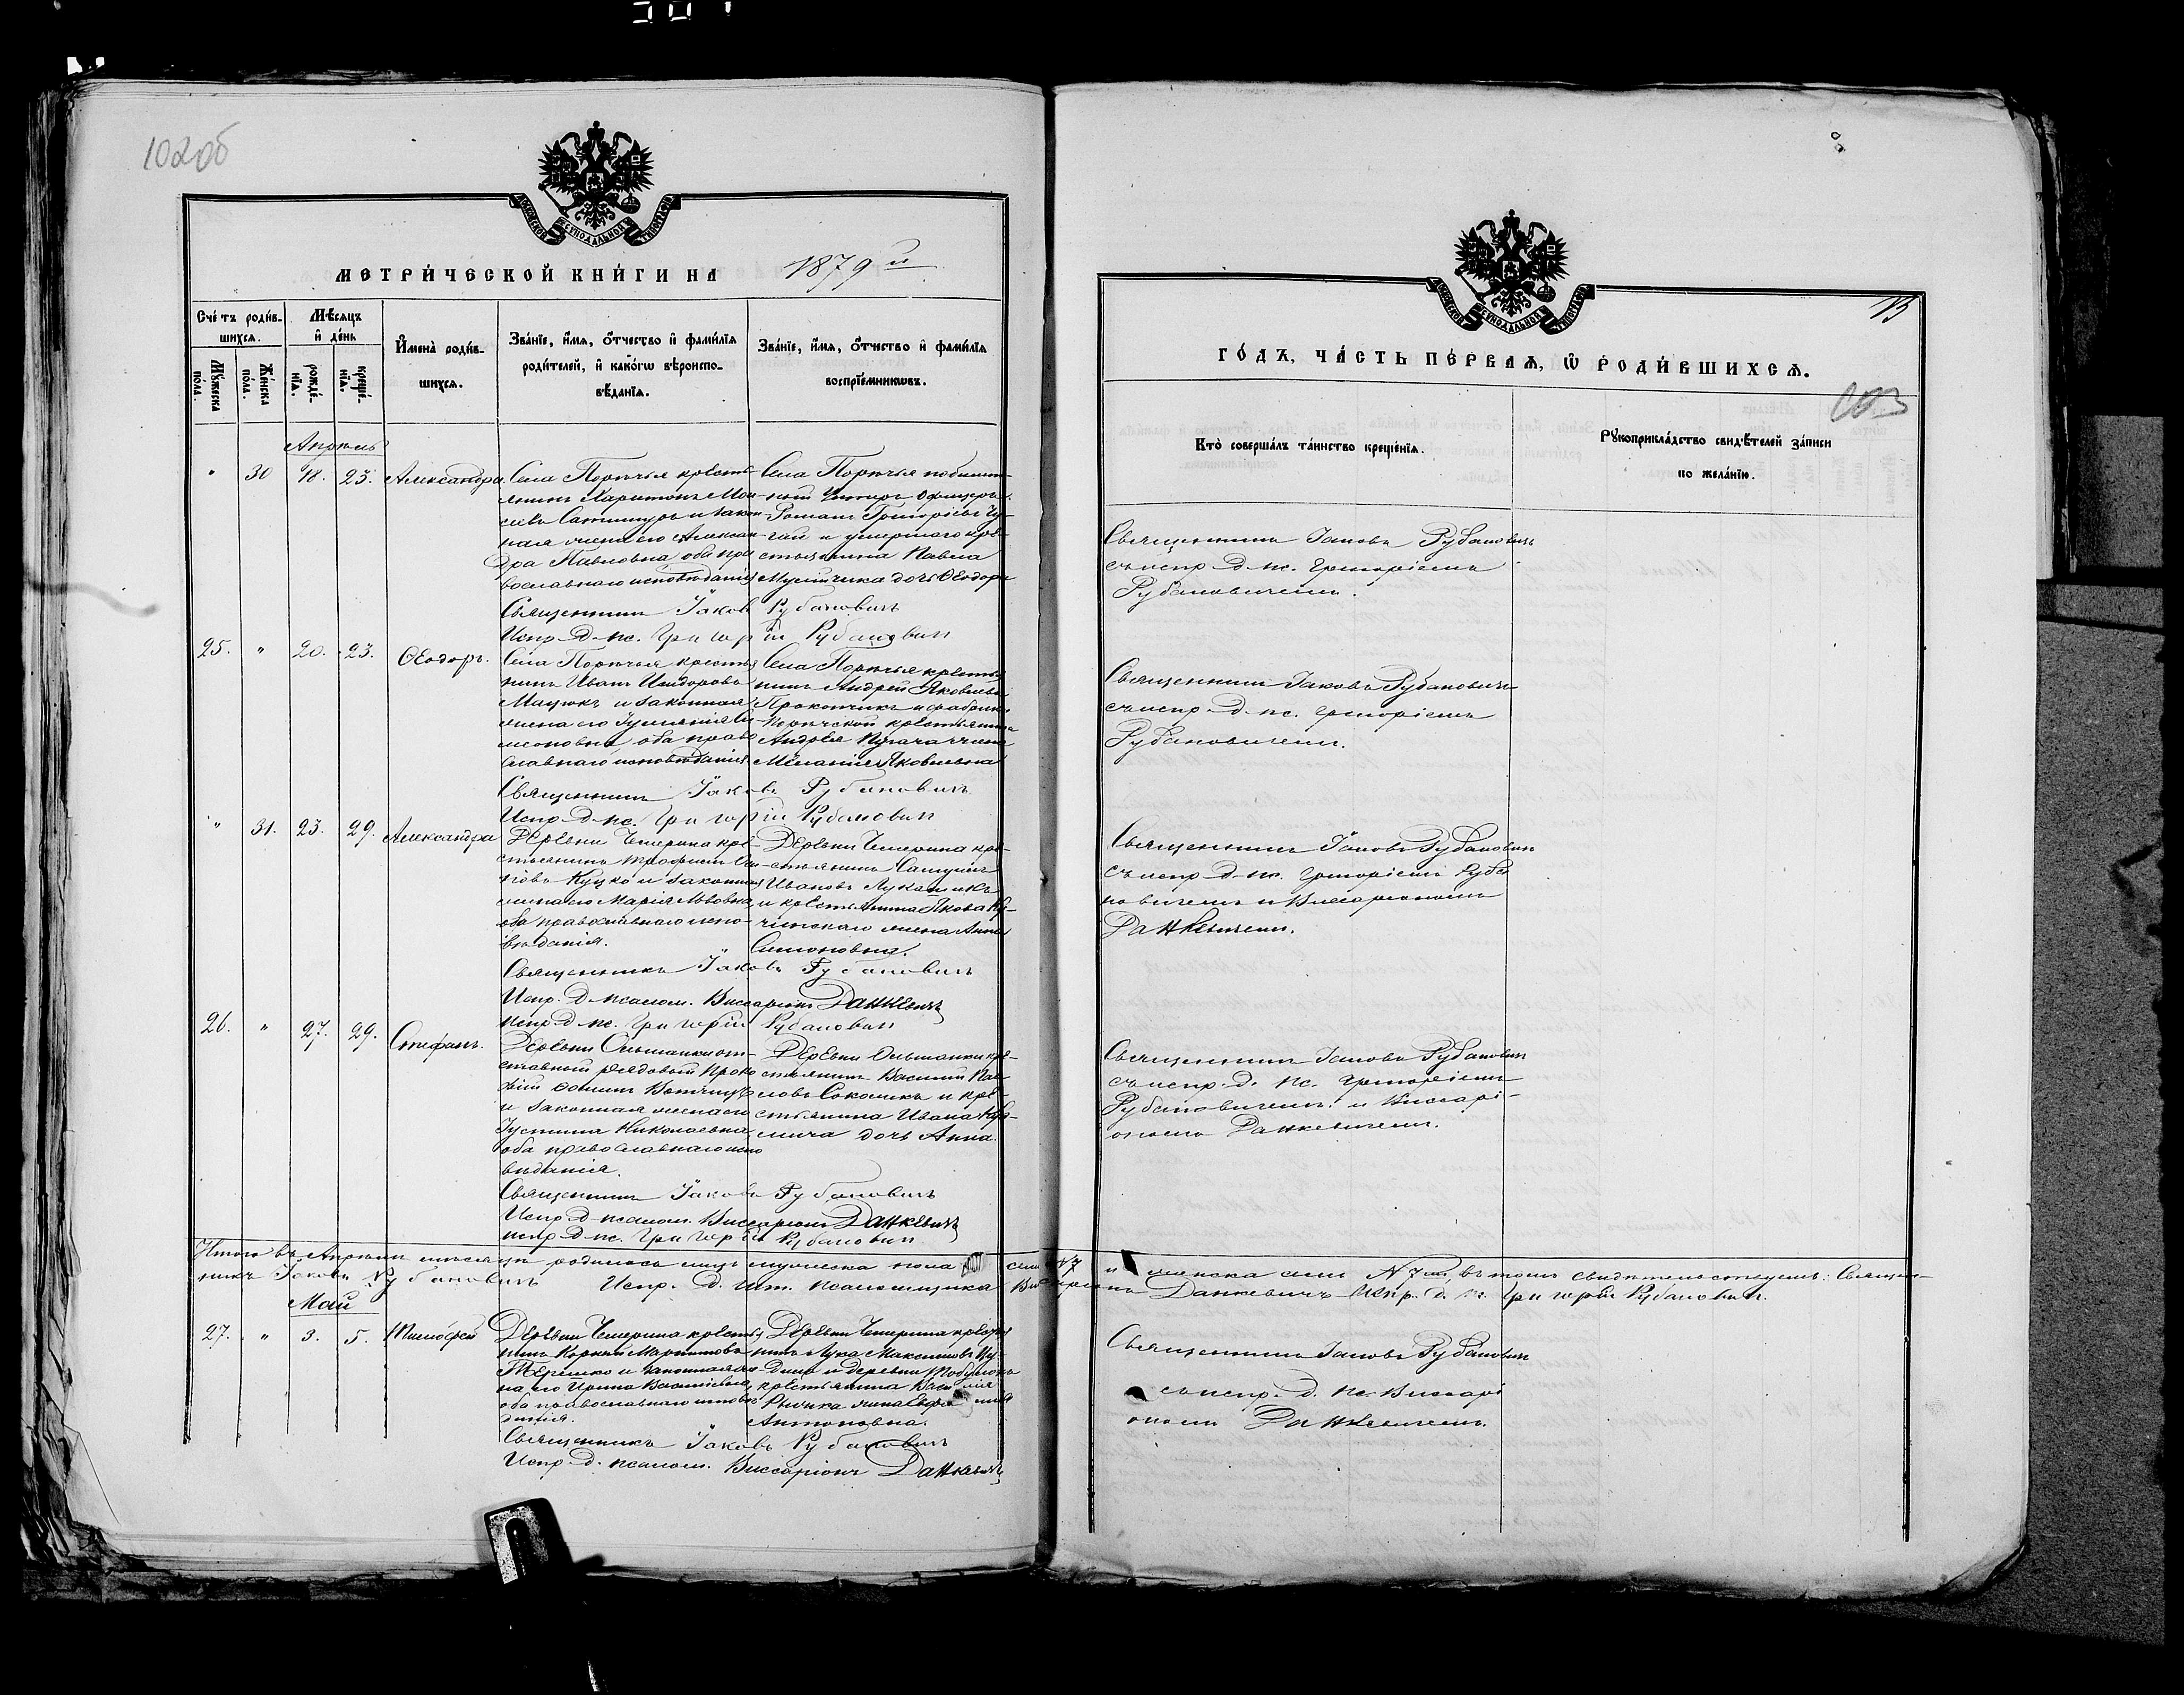 102 об
МОСКОВСКОЙ СѴНОДАЛЬНОЙ ТИПОГРАФІИ
МЕТРИ́ЧЕСКОЙ КНИ́ГИ НА 1879 й
Сче́тъ роди́в-
шихсѧ.
Мꙋ́жеска по́ла.
Же́нска по́ла.
Мѣ́сѧцъ
и҆ де́нь
рожде́-
нїѧ.
креще́-
нїѧ.
И҆мена̀ роди́в-
шихсѧ.
Зва́нїе, и҆́мѧ, ѻ҆́тчество и҆ фами́лїѧ
роди́телей, и҆ како́гѡ вѣроиспо-
вѣ́данїѧ.
Зва́нїе, и҆́мѧ, ѻ҆́тчество и҆ фами́лїѧ
воспрїе́мникѡвъ.
Апрѣль
" 30 18. 23. Александра.
Села Порѣчья крестья-
нинъ Харитонъ Мои-
сеевъ и закон-
ная жена его Алексан-
дра Павловна, оба пра
вославнаго исповѣданія
Села Порѣчья
Унтеръ Офицеръ
Романъ Григорьевъ
и умершаго кре-
стьянина Павла
дочь Ѳеодора
Священникъ Іаковъ Рубановичъ
Испр. д. пс. Григорій Рубановичъ
25. " 20. 23. Ѳеодоръ.
Села Порѣчья крестья
нинъ Иванъ Исидоровъ
и законная
жена его Іуліанія Си
меоновна, оба право
славнаго исповѣданія
Села Порѣчья крестья
нинъ Андрей Яковлевъ
Прокопчикъ и фабрики
Порѣчской крестьянина
Андрея Пугача жена
Меланія Яковлевна
Священникъ Іаковъ Рубановичъ
Испр. д. пс. Григорій Рубановичъ
" 31. 23. 29. Александра
Деревни Чемерина кре-
стьянинъ Трофимъ
Куцко и законная
жена его Марія Львовна,
оба православнаго испо-
вѣданія.
Деревни Чемерина кре-
стьянинъ
Ивановъ Лукашикъ
и крестьянина Якова
жена Анна
Симоновна.
Священникъ Іаковъ Рубановичъ
Испр. д. псалом. Виссаріонъ Данкевичъ
испр. д. пс. Григорій Рубановичъ
26. " 27. 29. Стефанъ.
Деревни Ольшанки от-
ставный рядовый Проко
фій
и законная жена его
Іустина Николаевна,
оба православнаго испо
вѣданія.
Деревни Ольшанки кре-
стьянинъ Василій Пав
ловъ Соколикъ и кре-
стьянина Ивана
дочь Анна.
Священникъ Іаковъ Рубановичъ
Испр. д. псалом. Виссаріонъ Данкевичъ
испр. д. пс. Григорій Рубановичъ
Итого въ Апрѣлѣ мѣсяцѣ родилось лицъ мужеска пола семь №7 и женска семь №7 мь, въ томъ свидѣтельствуемъ: Священ-
никъ Іаковъ Рубановичъ Испр. д. шт. псаломщика Виссаріонъ Данкевичъ Испр. д. пс. Григорій Рубановичъ.
Май
27. " 3. 5. Тимоѳей
Деревни Чемерина крестья
нинъ Корнилій Мартиновъ
Терешко и законная же
на его Ирина Васильевна,
оба православнаго исповѣ
данія.
Деревни Чемерина крестья
нинъ Лука Максимовъ
и деревни
крестьянина Василія
жена
Антоновна.
Священникъ Іаковъ Рубановичъ
Испр. д. псалом. Виссаріонъ Данкевичъ
МОСКОВСКОЙ СѴНОДАЛЬНОЙ ТИПОГРАФІИ
ГО́ДЪ, ЧА́СТЬ ПЕ́РВАѦ, Ѡ҆ РОДИ́ВШИХСѦ.
103
Кто̀ соверша́лъ та́инство креще́нїѧ.
Рꙋкоприкла́дство свидѣ́телей за́писи
по жела́нїю.
Священникъ Іаковъ Рубановичъ
съ испр. д. пс. Григоріемъ
Рубановичемъ.
Священникъ Іаковъ Рубановичъ
съ испр. д. пс. Григоріемъ
Рубановичемъ.
Священникъ Іаковъ Рубановичъ
съ испр. д. пс. Григоріемъ Руба
новичемъ и Виссаріономъ
Данкевичемъ.
Священникъ Іаковъ Рубановичъ
съ испр. д. пс. Григоріемъ
Рубановичемъ и Виссарі-
ономъ Данкевичемъ.
Священникъ Іаковъ Рубановичъ
съ испр. д. пс. Виссарі
ономъ Данкевичемъ.